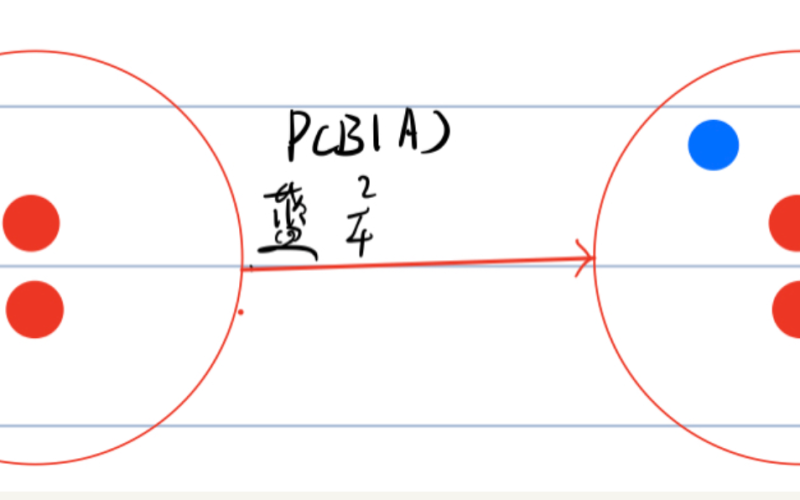 P(B|A)
蓝 2/4